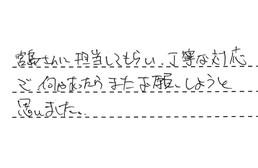 宮島さんに担当してもらい、丁寧な対応
で何かあったらまたお願いしようと
思いました。